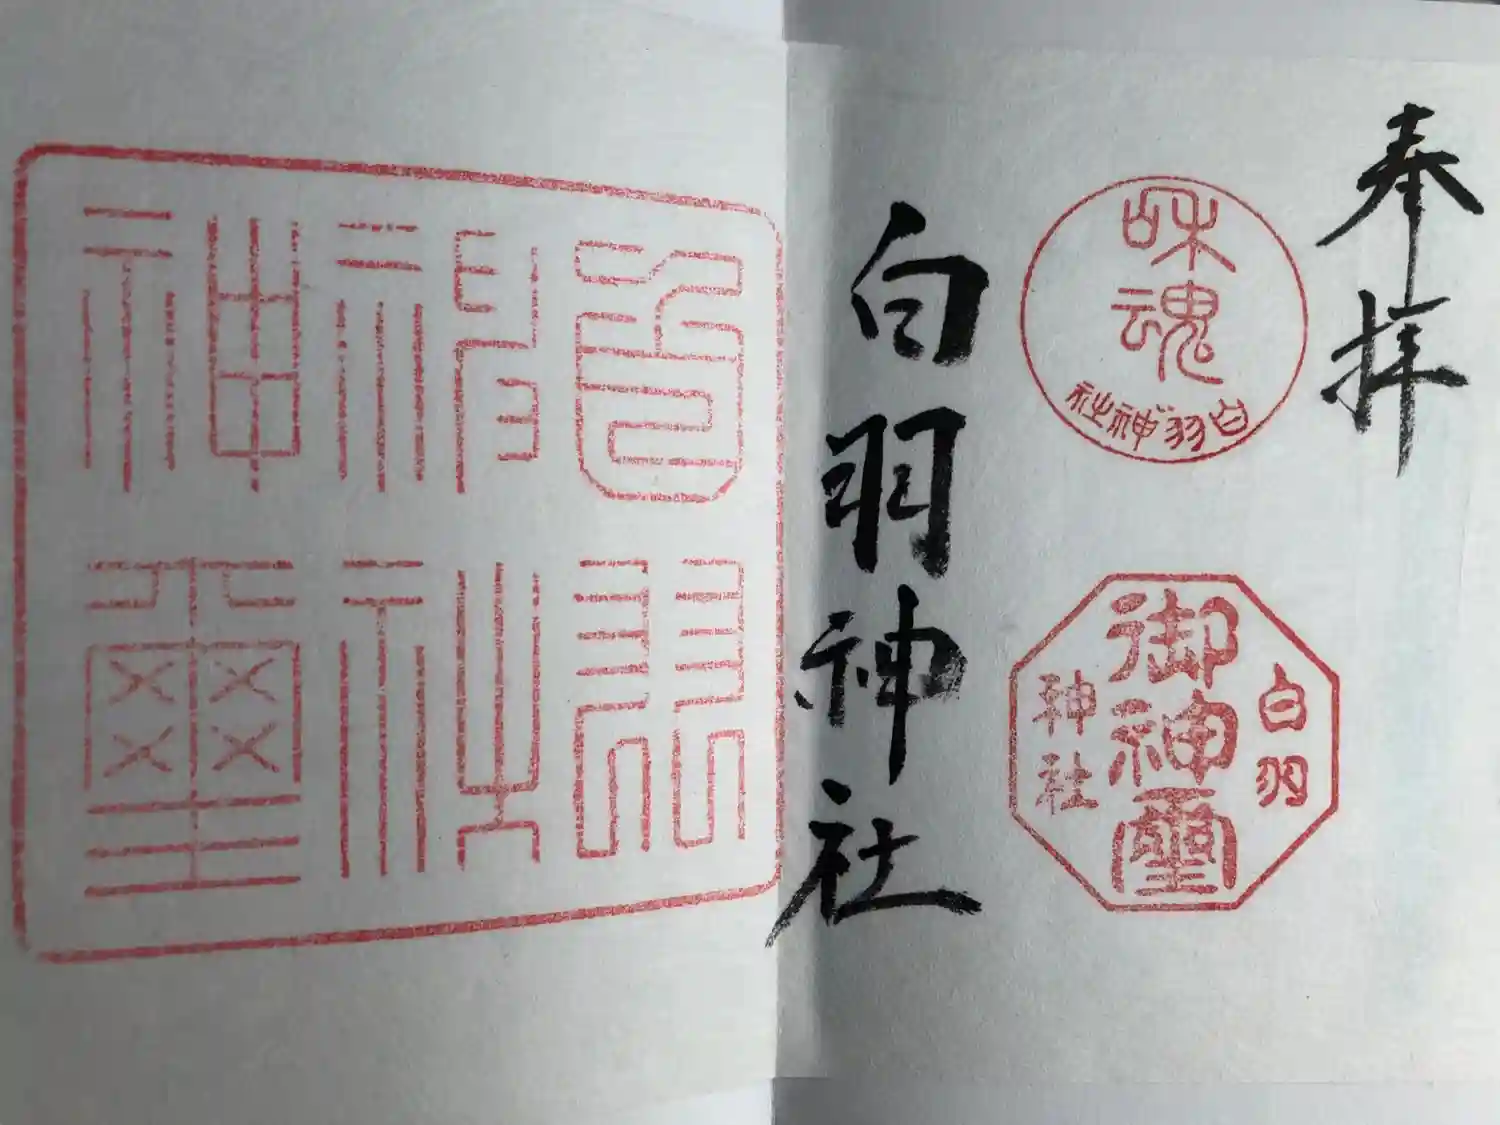 奉拝
和魂
白羽神社
白羽
御神璽
神社
白羽神社
白羽
神社
神璽